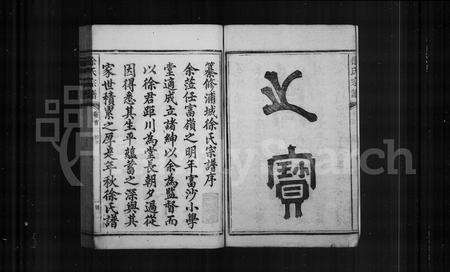 之
寶
纂修浦城徐氏宗譜序
余蒞任富嶺之明年富沙小學
堂適成立諸紳以余為監督而
以徐君距川為堂長朝夕過從
因得悉其生平蘊蓄之深與其
家世積累之厚是年秋徐氏譜
徐氏宗譜